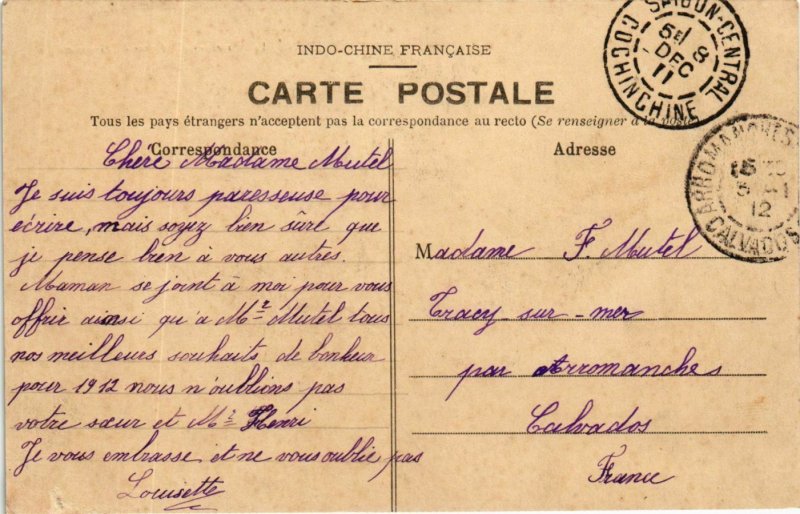 INDO-CHINE FRANÇAISE
CARTE POSTALE
Tous les pays étrangers n'acceptent pas la correspondance au recto (Se renseigner à la poste
Correspondance
Chère Madame Mutel
Je suis toujours paresseuse pour
écrire, mais soyez bien sûre que
je pense bien à vous autres.
Maman se joint à moi pour vous
offrir ainsi qu'a Mr Mutel tous
nos meilleurs souhaits de bonheur
pour 1912 nous n'oublions pas
votre sœur et Mr Henri
Je vous embrasse et ne vous oublie pas
Louisette
Adresse
Madame F. Mutel
Tracy-sur-mer
par Arromanches
Calvados
France
SAIGON-CENTRAL
8
DEC
11
COCHINCHINE
ARROMANCHES
12
CALVADOS